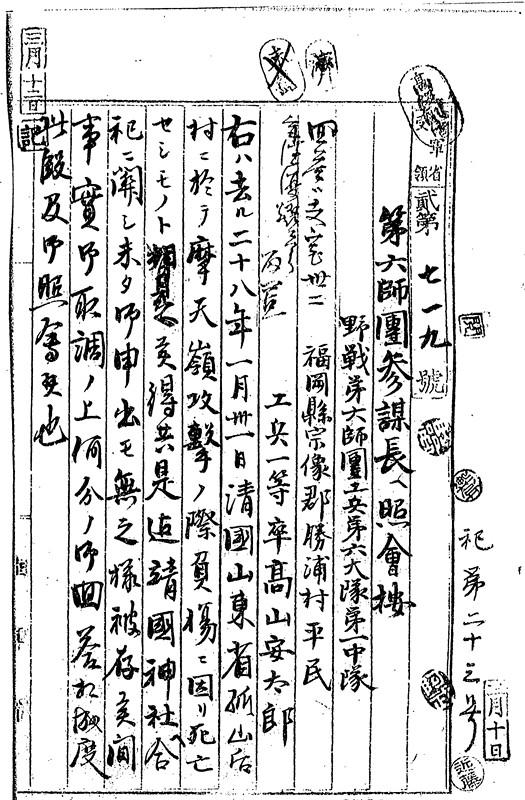 祀第二十三号
二月十日
近藤
陸軍省
受領
貳第七一九號
第六師團参謀長ヘ照會按
野戰第六師團工兵第六大隊第一中隊
福岡縣宗像郡勝浦村平民
工兵一等卒髙山安太郎
右ハ去ル二十八年一月卅一日清國山東省孤山后
村ニ於テ摩天嶺攻撃ノ際負傷ニ因リ死亡
セシモノト相見ヘ候得共是迠靖國神社合
祀ニ関シ未タ御申出モ無之様被存候間
事實御取調ノ上何分ノ御回答相成度
此段及御照會候也
済
三月十二日
記